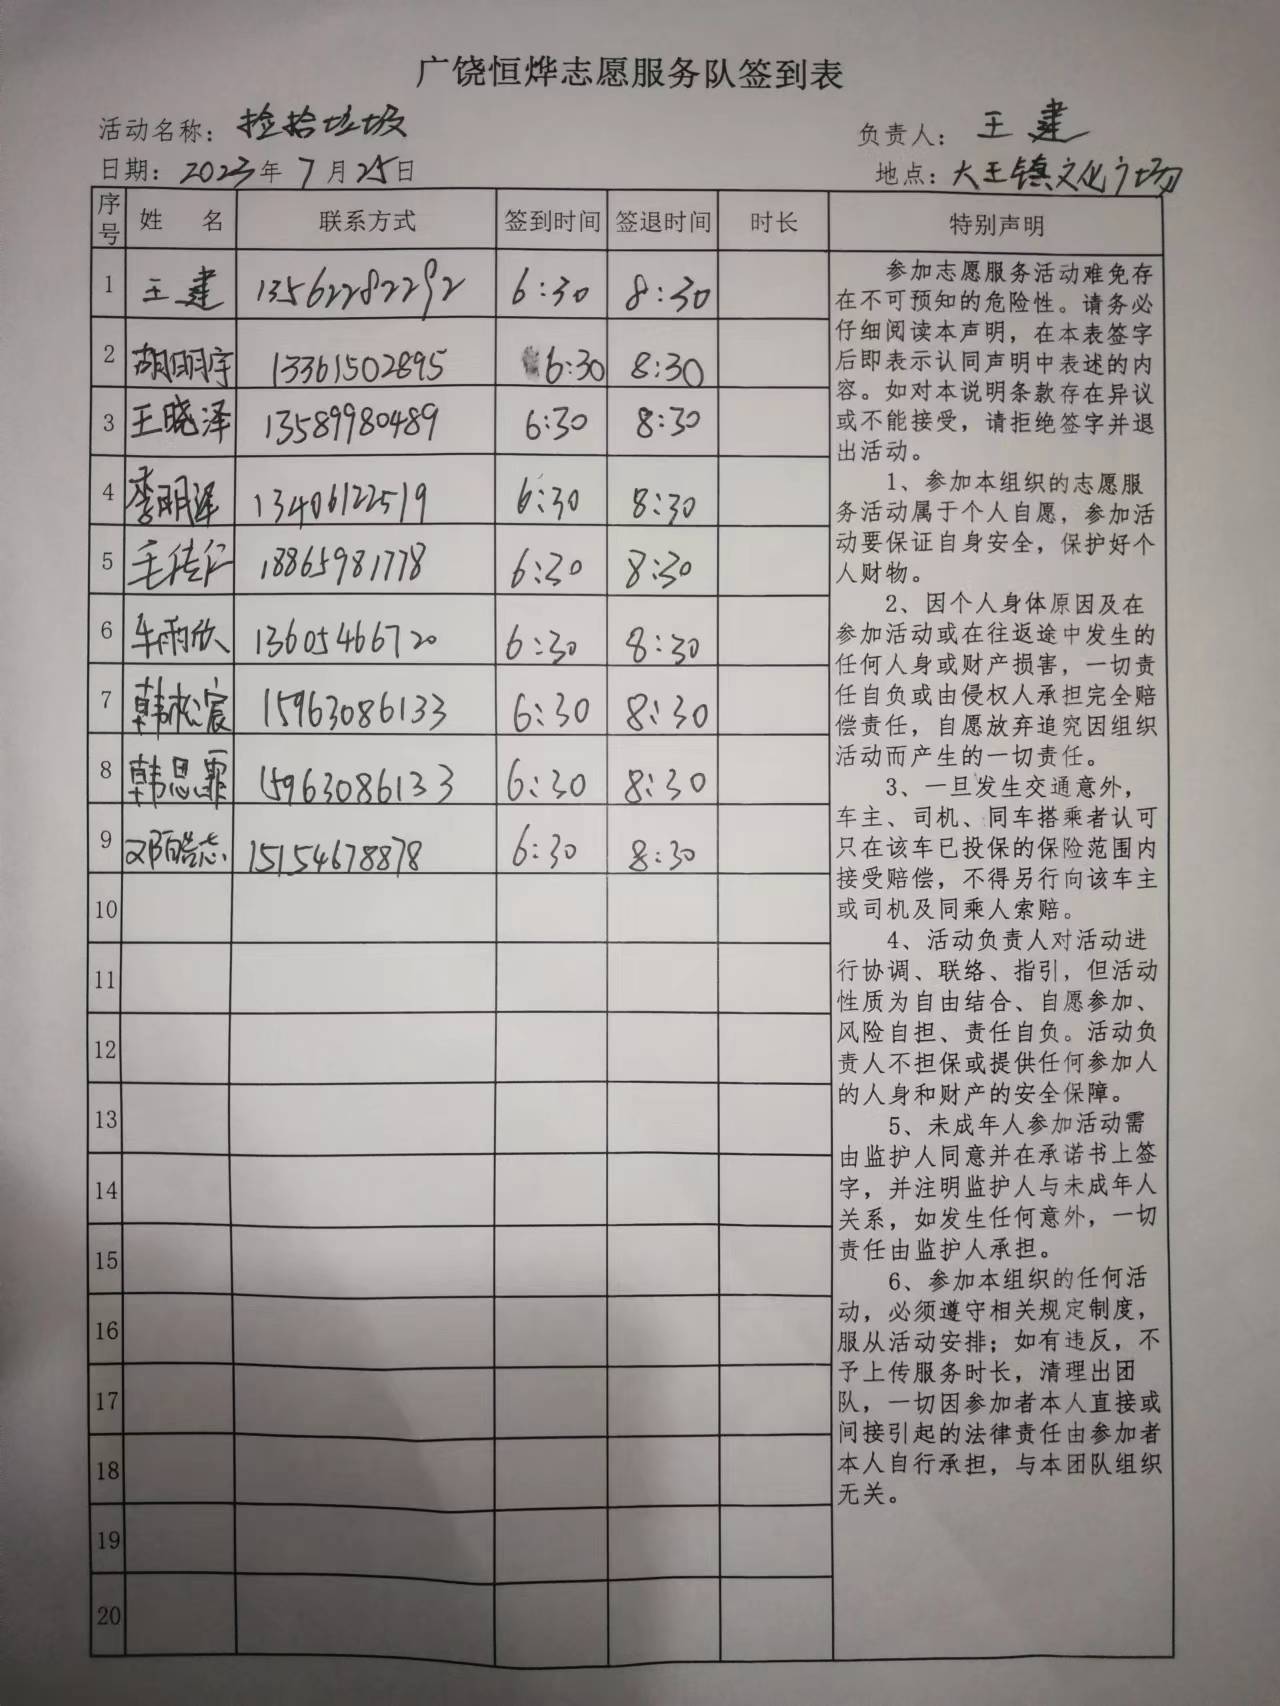 广饶恒烨志愿服务队签到表
活动名称：捡拾垃圾 负责人：王建
日期：2023年7月25日 地点：大王镇文化广场
序号 姓名 联系方式 签到时间 签退时间 时长 特别声明
1 王建 13562282292 6:30 8:30
2 胡明宇 13361502895 6:30 8:30
3 王晓泽 13589980489 6:30 8:30
4 李明泽 13406122519 6:30 8:30
5 毛传仁 18865981778 6:30 8:30
6 牛雨欣 13605466720 6:30 8:30
7 韩松宸 15963086133 6:30 8:30
8 韩思霏 15963086133 6:30 8:30
9 邓皓志 15154678878 6:30 8:30
10
11
12
13
14
15
16
17
18
19
20
参加志愿服务活动难免存
在不可预知的危险性。请务必
仔细阅读本声明，在本表签字
后即表示认同声明中表述的内
容。如对本说明条款存在异议
或不能接受，请拒绝签字并退
出活动。
1、参加本组织的志愿服
务活动属于个人自愿，参加活
动要保证自身安全，保护好个
人财物。
2、因个人身体原因及在
参加活动或在往返途中发生的
任何人身或财产损害，一切责
任自负或由侵权人承担完全赔
偿责任，自愿放弃追究因组织
活动而产生的一切责任。
3、一旦发生交通意外，
车主、司机、同车搭乘者认可
只在该车已投保的保险范围内
接受赔偿，不得另行向该车主
或司机及同乘人索赔。
4、活动负责人对活动进
行协调、联络、指引，但活动
性质为自由结合、自愿参加、
风险自担、责任自负。活动负
责人不担保或提供任何参加人
的人身和财产的安全保障。
5、未成年人参加活动需
由监护人同意并在承诺书上签
字，并注明监护人与未成年人
关系，如发生任何意外，一切
责任由监护人承担。
6、参加本组织的任何活
动，必须遵守相关规定制度，
服从活动安排；如有违反，不
予上传服务时长，清理出团
队，一切因参加者本人直接或
间接引起的法律责任由参加者
本人自行承担，与本团队组织
无关。